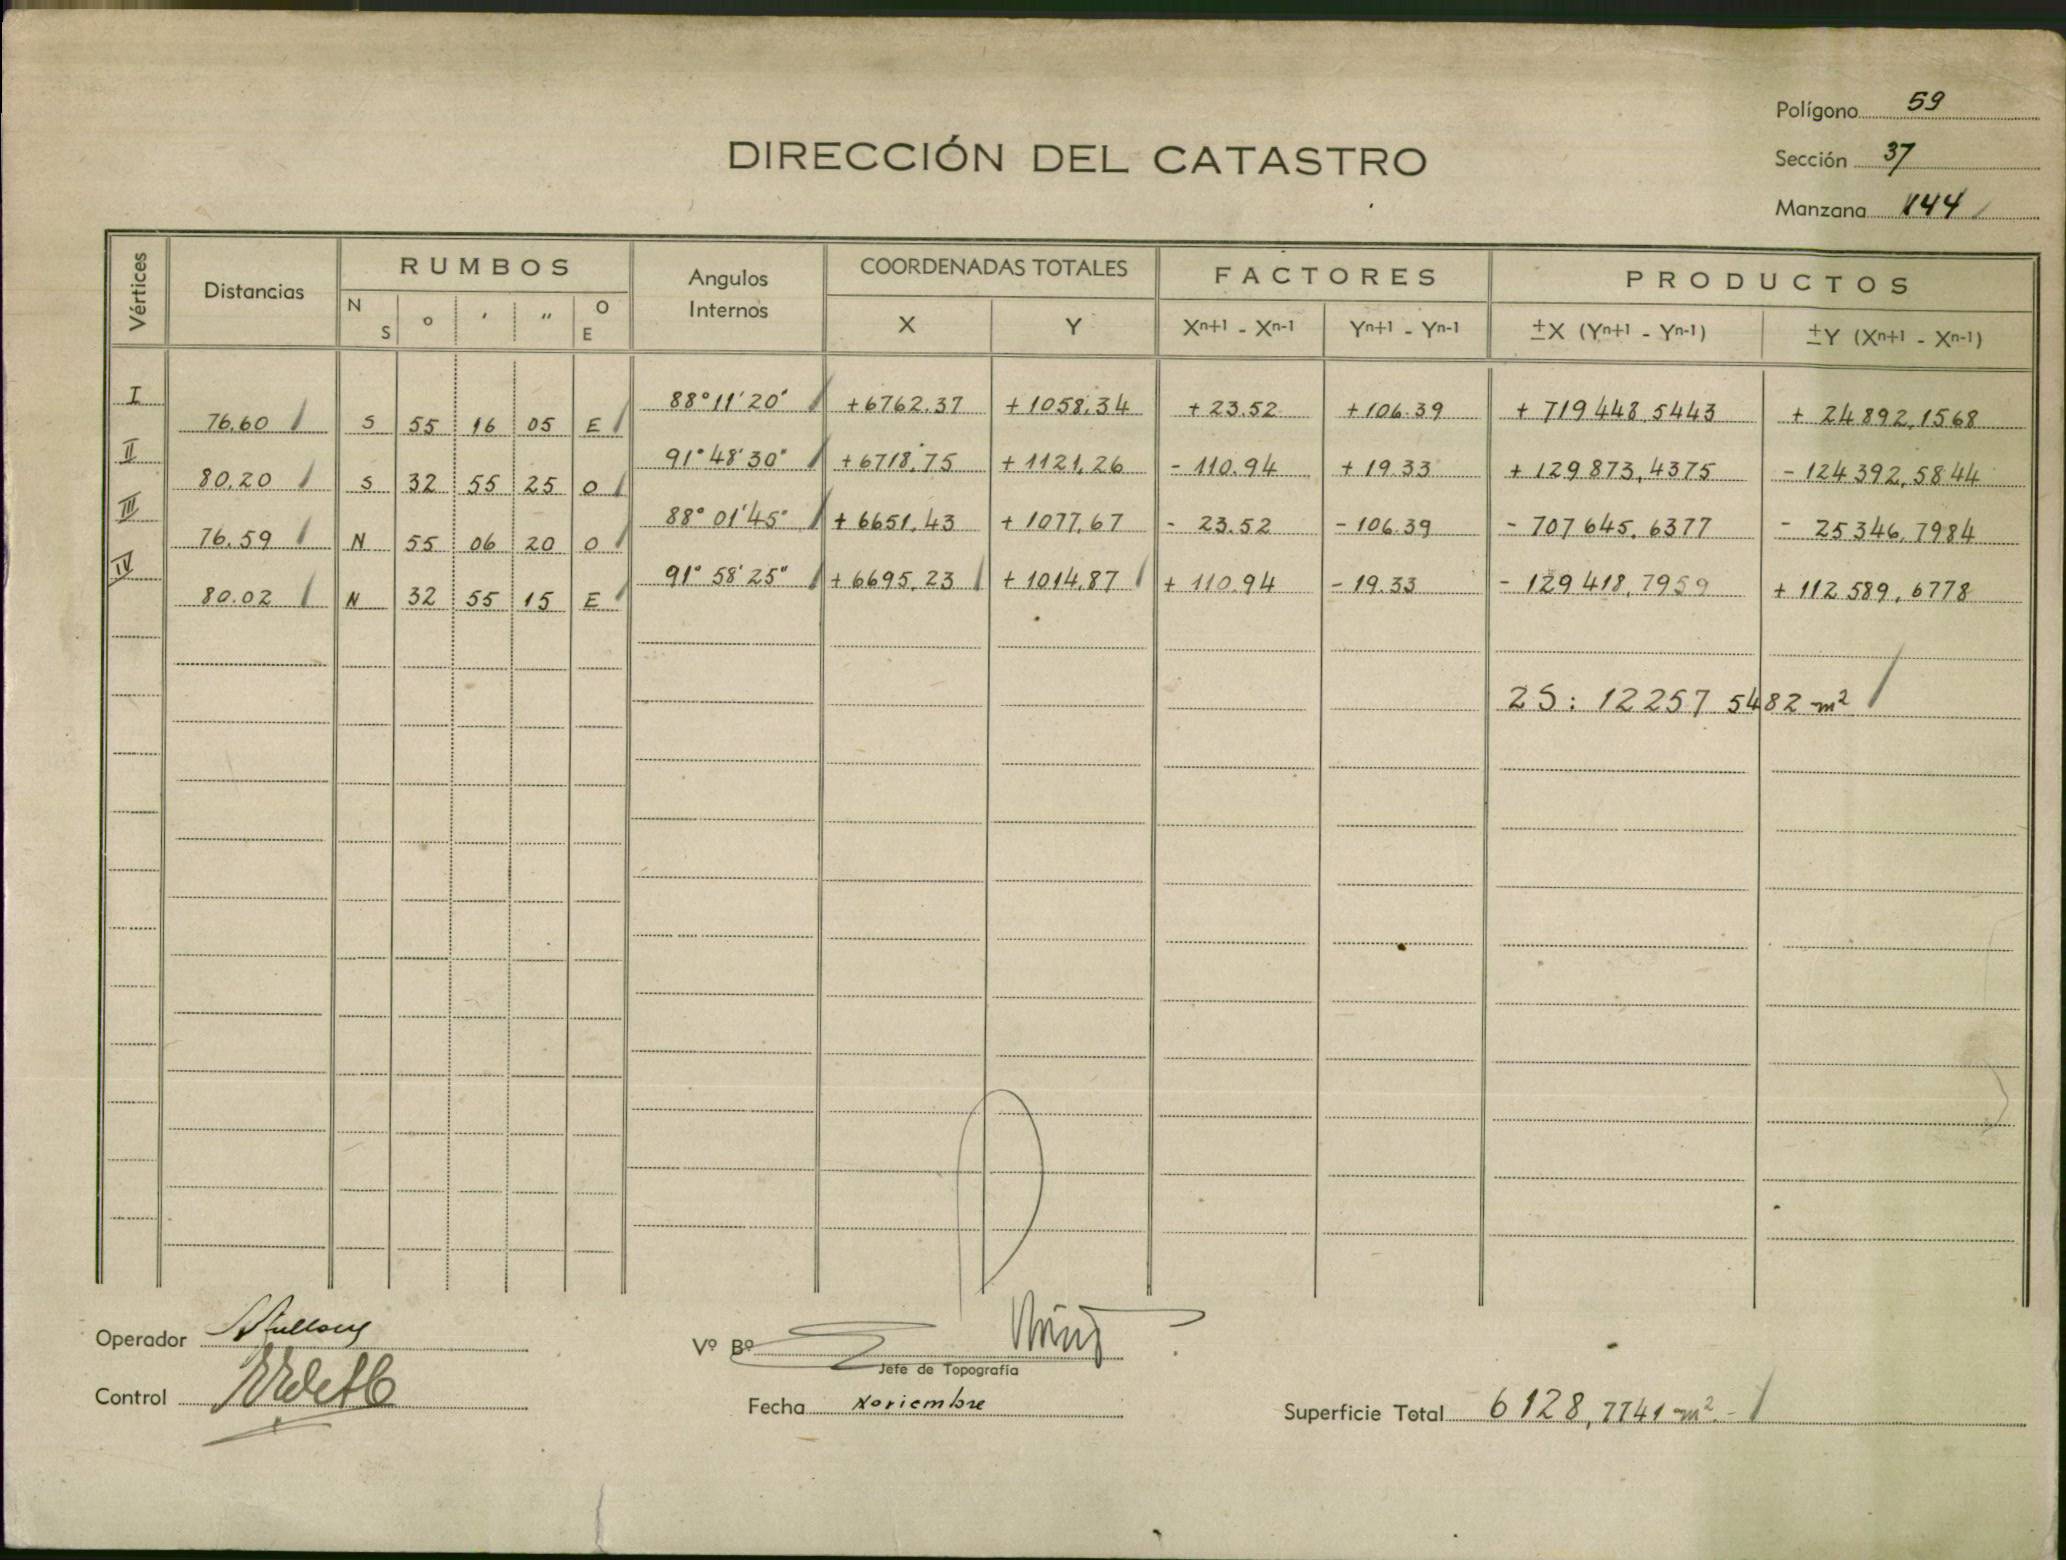 Polígono 59
DIRECCIÓN DEL CATASTRO
Sección 37
Manzana 144
Vértices Distancias RUMBOS Angulos Internos COORDENADAS TOTALES FACTORES PRODUCTOS
N S ° ' " O E X Y Xn+1 - Xn-1 Yn+1 - Yn-1 ±X (Yn+1 - Yn-1) ±Y (Xn+1 - Xn-1)
I 88°11'20" +6762.37 +1058.34 +23.52 +106.39 +719448,5443 +24892,1568
76.60 S 55 16 05 E
II 91°48'30" +6718,75 +1121,26 -110.94 +19.33 +129873,4375 -124392,5844
80.20 S 32 55 25 O
III 88°01'45" +6651,43 +1077,67 -23.52 -106.39 -707645,6377 -25346,7984
76.59 N 55 06 20 O
IV 91°58'25" +6695,23 +1014,87 +110.94 -19.33 -129418,7959 +112589,6778
80.02 N 32 55 15 E
2S: 12257 5482 m²
Operador
Vº Bº
Jefe de Topografía
Control
Fecha Noviembre
Superficie Total 6128,7741 m².-